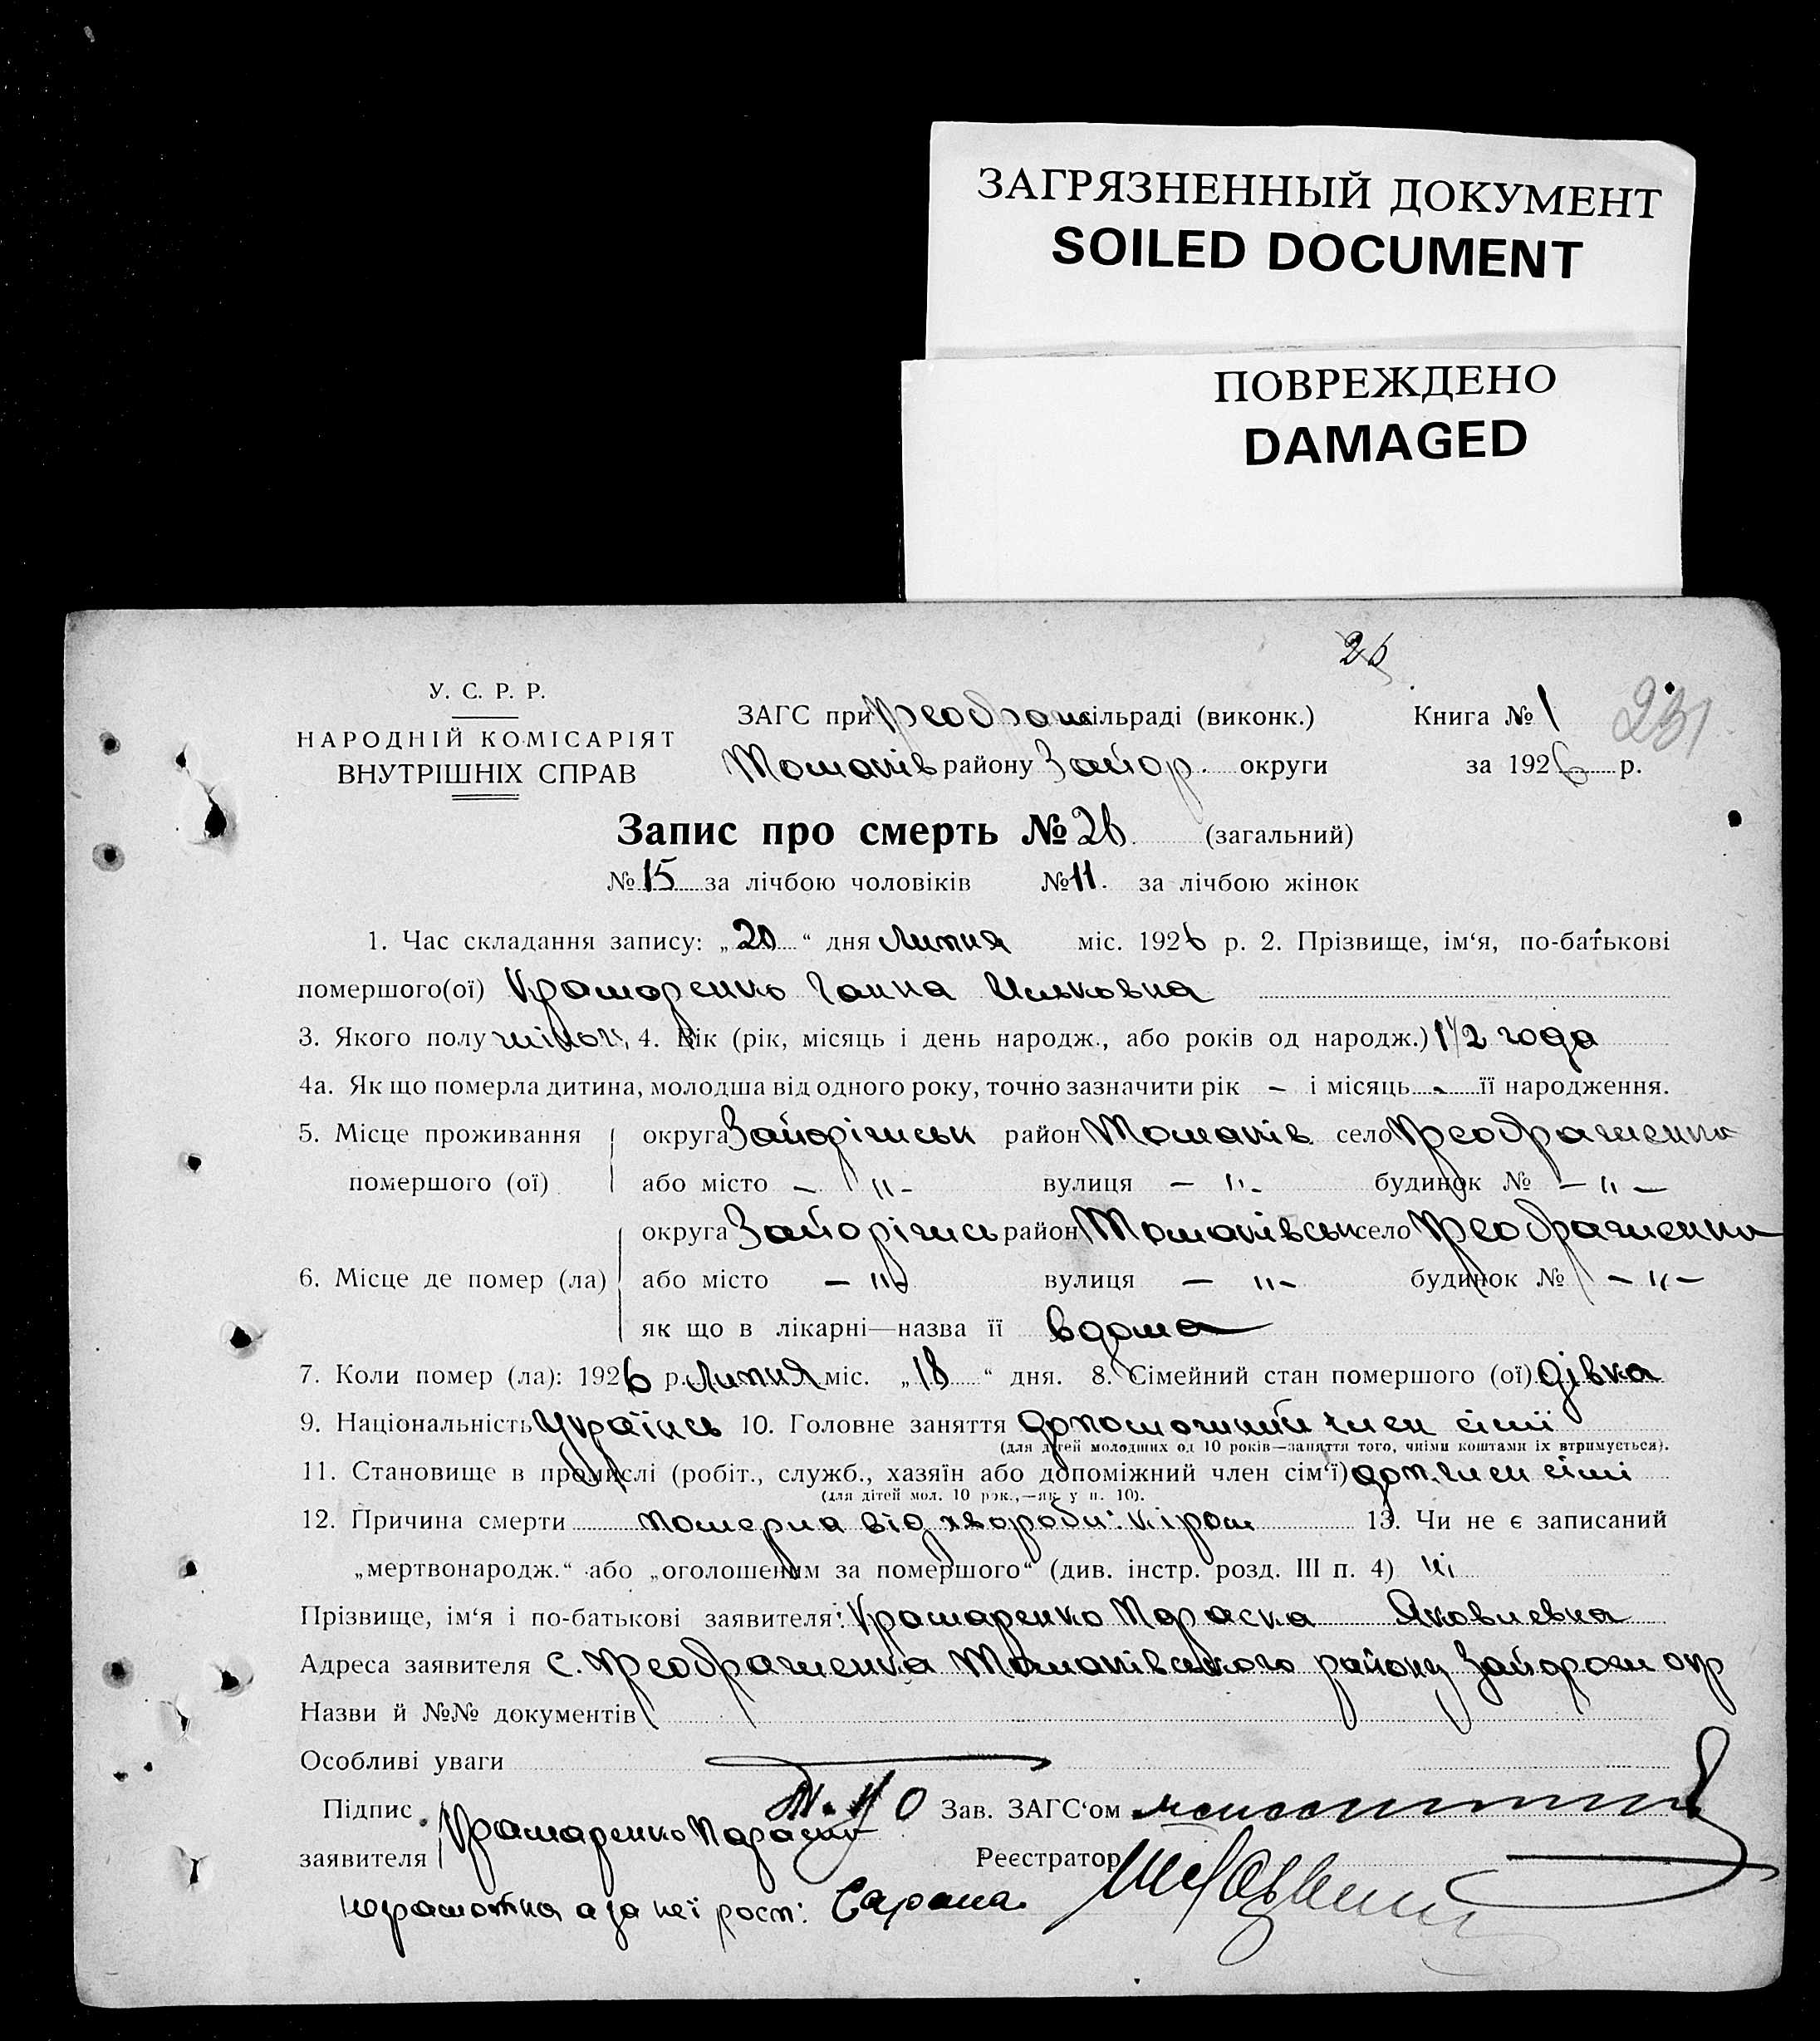 ЗАГРЯЗНЕННЫЙ ДОКУМЕНТ
SOILED DOCUMENT
ПОВРЕЖДЕНО
DAMAGED
26
У. С. Р. Р.
НАРОДНІЙ КОМІСАРІЯТ
ВНУТРІШНІХ СПРАВ
ЗАГС при Преображ сільраді (виконк.) Книга № 1 231
Томаків району Запор. округи за 1926 р.
Запис про смерть № 26. (загальний)
№ 15 за лічбою чоловіків № 11. за лічбою жінок
1. Час складання запису: „20“ дня Липня міс. 1926 р. 2. Прізвище, ім‘я, по-батькові
помершого(ої) Крамаренко Ганна Ильковна
3. Якого полу жіноч, 4. Вік (рік, місяць і день народж., або років од народж.) 1 1/2 года
4а. Як що померла дитина, молодша від одного року, точно зазначити рік – і місяць - її народження.
5. Місце проживання округа Запоріжськ район Томаків село Преображенка
помершого (ої) або місто – " - вулиця – " - будинок № – " –
округа Запоріжсь район Томаківськ село Преображенка
6. Місце де помер (ла) або місто – " - вулиця – " - будинок № – " –
як що в лікарні—назва її вдома
7. Коли помер (ла): 1926 р. Липня міс. „18“ дня. 8. Сімейний стан помершого (ої) дівка
9. Національність Українсь 10. Головне заняття допоможний член сімї
(для дітей молодших од 10 років—заняття того, чиїми коштами їх втримується).
11. Становище в промислі (робіт., служб., хазяїн або допоміжний член сім‘ї) доп. член сімі
(для дітей мол. 10 рок.,—як у п. 10).
12. Причина смерти померла від хвороби: кіром 13. Чи не є записаний
„мертвонародж.“ або „оголошеним за помершого“ (див. інстр. розд. III п. 4) ні
Прізвище, ім‘я і по-батькові заявителя: Крамаренко Параска Яковлевна
Адреса заявителя с. Преображенка Томаківського району Запорож окр
Назви й №№ документів
Особливі уваги
Підпис Зав. ЗАГС‘ом
заявителя Крамаренко Параска Реєстратор
неграмотна а за неї росп: Сарана